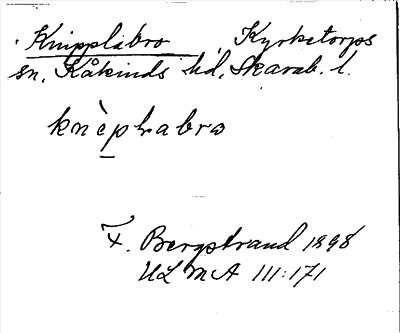 Knipplabro Kyrketorps
sn, Kåkinds hd, Skarab. l.
knèplrabrω
F. Bergstrand 1898
ULMA III:171